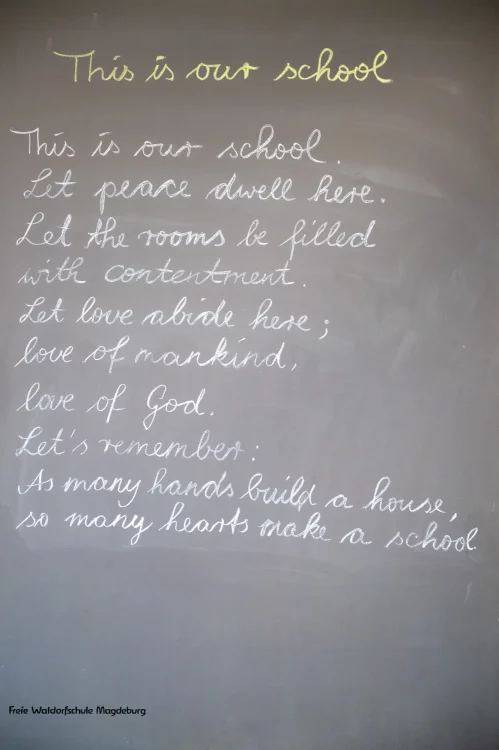 This is our school
This is our school.
Let peace dwell here.
Let the rooms be filled
with contentment.
Let love abide here;
love of mankind,
love of God.
Let's remember:
As many hands build a house,
so many hearts make a school
Freie Waldorfschule Magdeburg